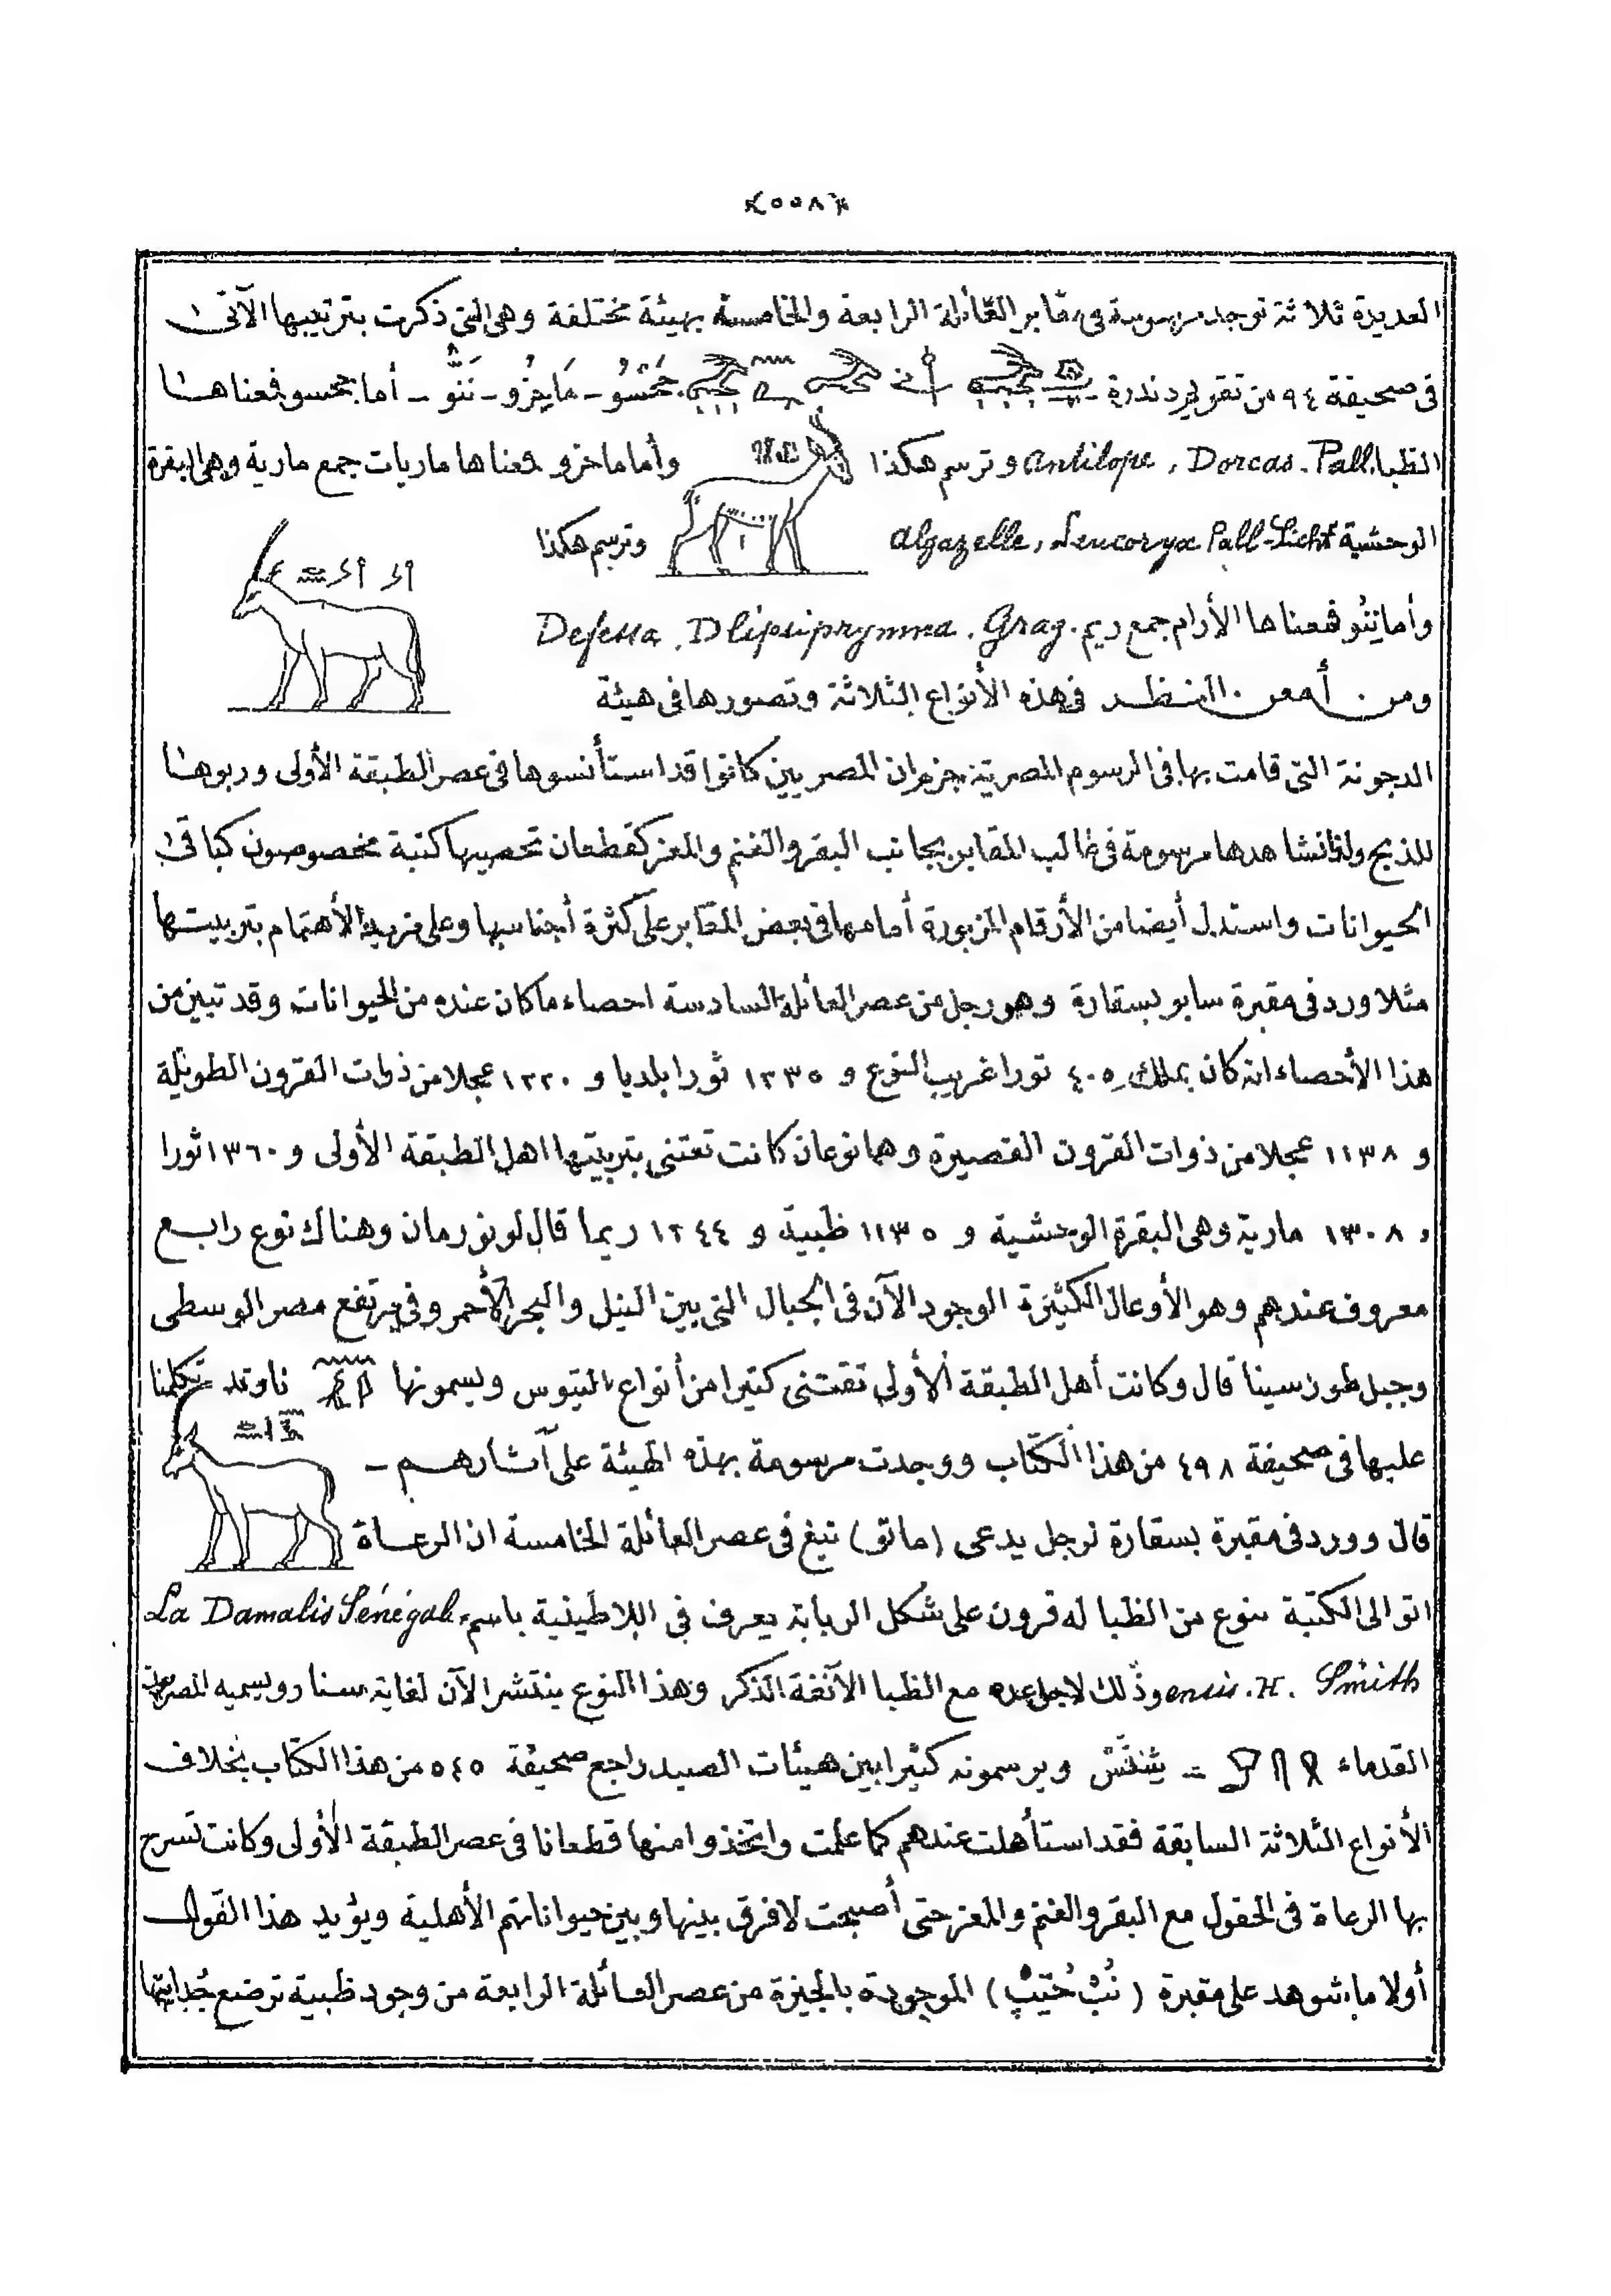 ﴿٥٥٨﴾
العديدة ثلاثة توجد مرسومة في مقابر العائلة الرابعة والخامسة بهيئة مختلفة وهى التى ذكرت بترتيبها الآتى
فى صحيفة ٩٤ من تقرير دندرة - حَمْسُو - مَاخِزُو - نَنُّو - أما حمسو فمعناها
الظبا Antilope, Dorcas. Pall. وترسم هكذا وأما ماخزو فمعناها ماريات جمع مارية وهى البقرة
الوحشية Algazelle, Leucoryx Pall-Licht وترسم هكذا
وأما نَنُو فمعناها الأرام جمع ريم Defessa. D lipsiprymna. Gray.
ومن أمعن النظر فى هذه الأنواع الثلاثة وتصورها فى هيئة
الدجونة التى قامت بها فى الرسوم المصرية جزم ان المصريين كانوا قد استأنسوها فى عصر الطبقة الأولى وربوها
للذبح ولذا نشاهدها مرسومة فى غالب المقابر بجانب البقر والغنم والمعز كقطعان تحصيها كتبة مخصوصون كباقى
الحيوانات واستدل أيضا من الأرقام المزبورة أمامها فى بعض المقابر على كثرة أجناسها وعلى مزيد الأهتمام بتربيتها
مثلا ورد فى مقبرة سابو بسقارة وهو رجل من عصر العائلة السادسة احصاء ما كان عنده من الحيوانات وقد تبين من
هذا الأحصاء انه كان يملك ٤٠٥ ثورا غريب النوع و ١٢٣٥ ثورا بلديا و ١٢٢٠ عجلا من ذوات القرون الطويلة
و ١١٣٨ عجلا من ذوات القرون القصيرة وهما نوعان كانت تعتنى بتربيتها اهل الطبقة الأولى و ١٣٦٠ ثورا
و ١٣٠٨ مارية وهى البقرة الوحشية و ١١٣٥ ظبية و ١٢٤٤ ريما قال لونورمان وهناك نوع رابع
معروف عندهم وهو الأوعال الكثيرة الوجود الآن فى الجبال التى بين النيل والبحر الأحمر وفى مرتفع مصر الوسطى
وجبل طور سينا قال وكانت أهل الطبقة الأولى تقتنى كثيرا من أنواع التيوس ويسمونها ناو وقد تكلمنا
عليها فى صحيفة ٤٩٨ من هذا الكتاب ووجدت مرسومة بهذه الهيئة على آثارهم -
قال وورد فى مقبرة بسقارة لرجل يدعى (ماتو) نبغ فى عصر العائلة الخامسة ان الرعاة
اتوا الى الكتبة بنوع من الظبا له قرون على شكل الربابة يعرف فى اللاطينية باسم La Damalis Sénégal-
ensis. H. Smith وذلك لاجل عده مع الظبا الآنفة الذكر وهذا النوع ينتشر الآن لغاية سنار ويسميه المصريون
القدماء - شِنَسْ ويرسمونه كثيرا بين هيئات الصيد راجع صحيفة ٥٤٥ من هذا الكتاب بخلاف
الأنواع الثلاثة السابقة فقد استأهلت عندهم كما علمت واتخذوا منها قطعانا فى عصر الطبقة الأولى وكانت تسرح
بها الرعاة فى الحقول مع البقر والغنم والمعز حتى أصبحت لا فرق بينها وبين حيواناتهم الأهلية ويؤيد هذا القول
أولا ما شوهد على مقبرة (نُبْ حُتِيْب) الموجودة بالجيزة من عصر العائلة الرابعة من وجود ظبية ترضع جدايتها